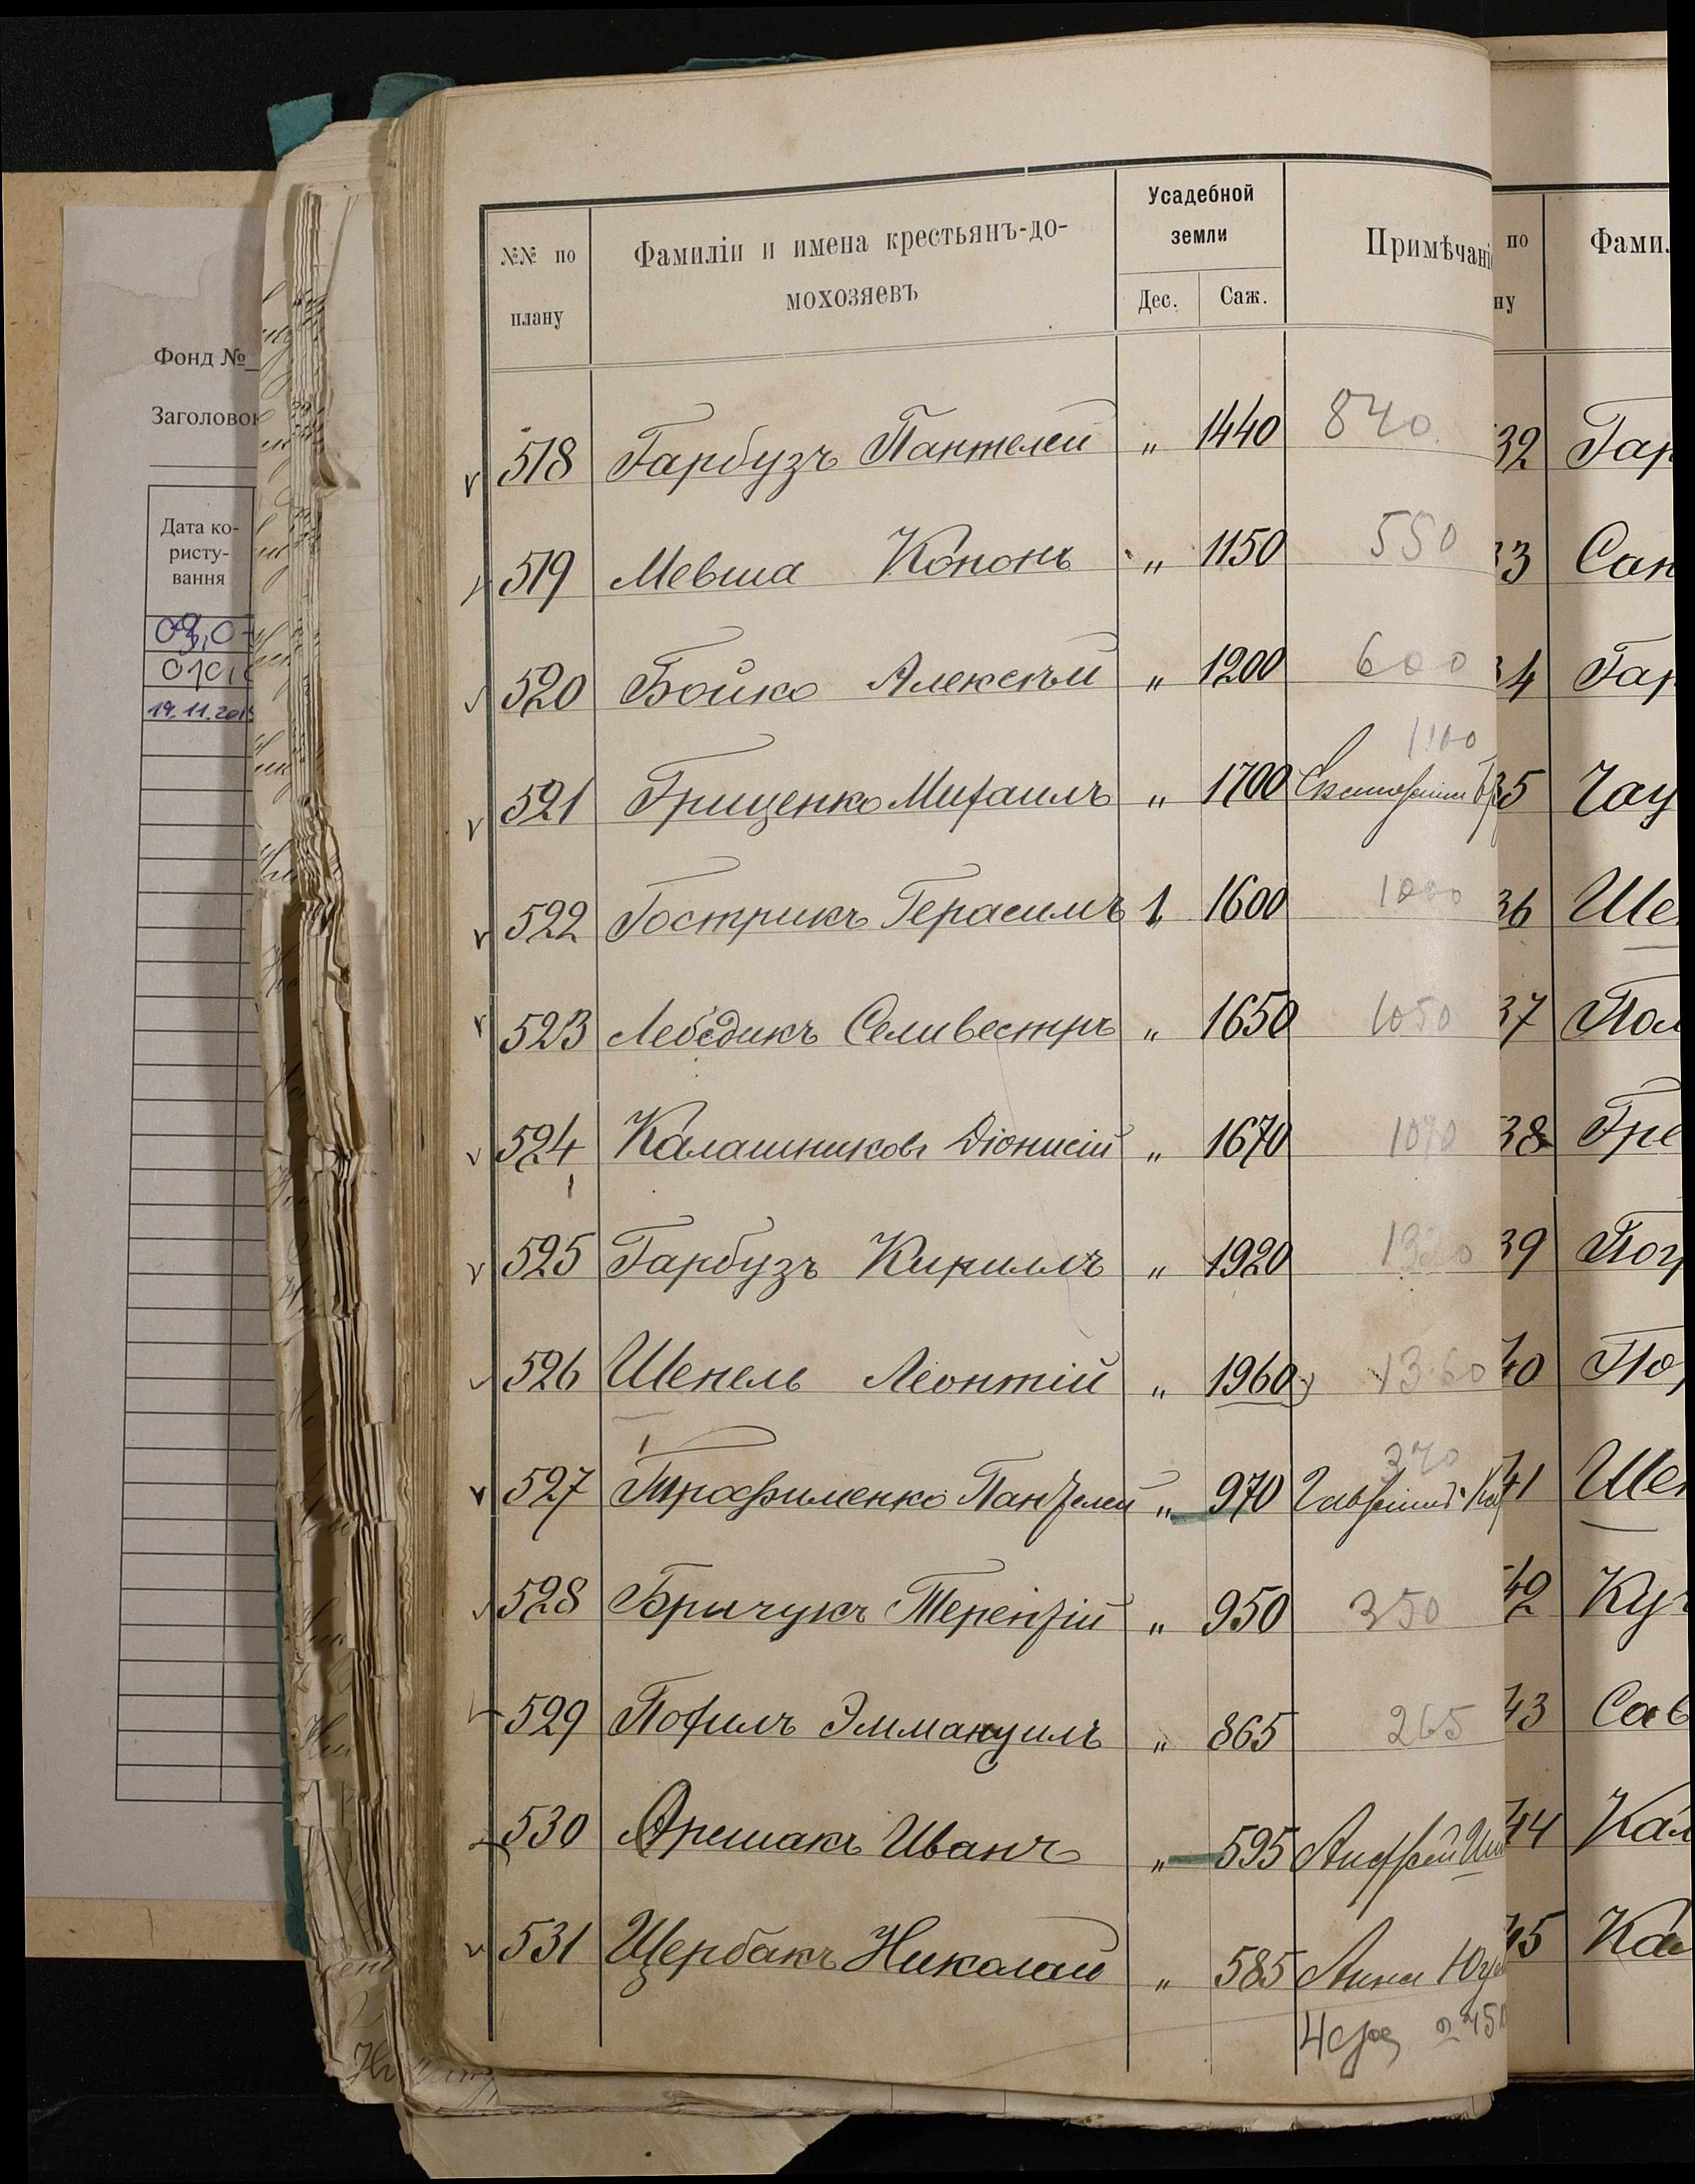 Фонд №
Заголовок
Дата ко-
ристу-
вання
19.11.201
№№ по
плану
Фамиліи и имена крестьянъ-до-
мохозяевъ
Усадебной
земли
Дес. Саж.
Примѣчані
518 Гарбузъ Пантелей „ 1440 840
519 Мевша Кононъ „ 1150 550
520 Бойко Алексѣй „ 1200 600
1100
521 Грищенко Михаилъ „ 1700
522 Гострикъ Герасимъ 1 1600 1000
523 Лебедикъ Селивестръ „ 1650 1050
524 Калашниковъ Діонисій „ 1670 1070
525 Гарбузъ Кириллъ „ 1920
526 Шепель Леонтій „ 1960 1360
370
527 Трофименко Пантелей „ 970
528 Бричукъ Терентій „ 950 350
529 Похилъ Эммануилъ „ 865 265
530 Орешакъ Иванъ „ 595
531 Щербакъ Николай „ 585 Анна
по
ну
Фами
32 Гар
33
34 Гар
35 Чау
36 Ше
37 Пол
38 Гре
39
40 По
41 Ше
42 Куч
43 Сав
44 Кал
45 Ка